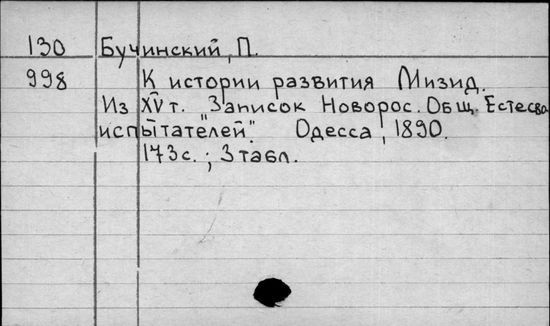 130 Бучинский, П.
998 К истории развития Мизид.
Из XV т. "Записок Новорос. Общ. Естесво
испытателей". Одесса, 1890.
173 с. ; 3 табл.